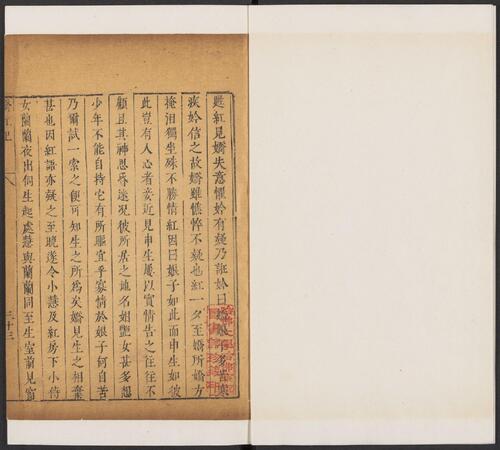 甦紅見嬌失意懼妗有疑乃誑妗曰嬌娘子多苦寒
疾妗信之故嬌雖憔悴不疑也紅一夕至嬌所嬌方
掩淚獨坐殊不勝情紅因曰娘子如此而申生如彼
此豈有人心者妾近見申生屢以實情告之往往不
顧且其神思昏迷况彼所居之地名娼艷女甚多想
少年不能自持它有所嘱宜乎寡情於娘子何自苦
乃爾試一索之便可知生之所為矣嬌見生之相棄
甚也因紅諫亦疑之至曉遂令小慧及紅房下小侍
女蘭蘭夜出伺生起處慧與蘭蘭同至生室前見窗
嬌紅記
三十三